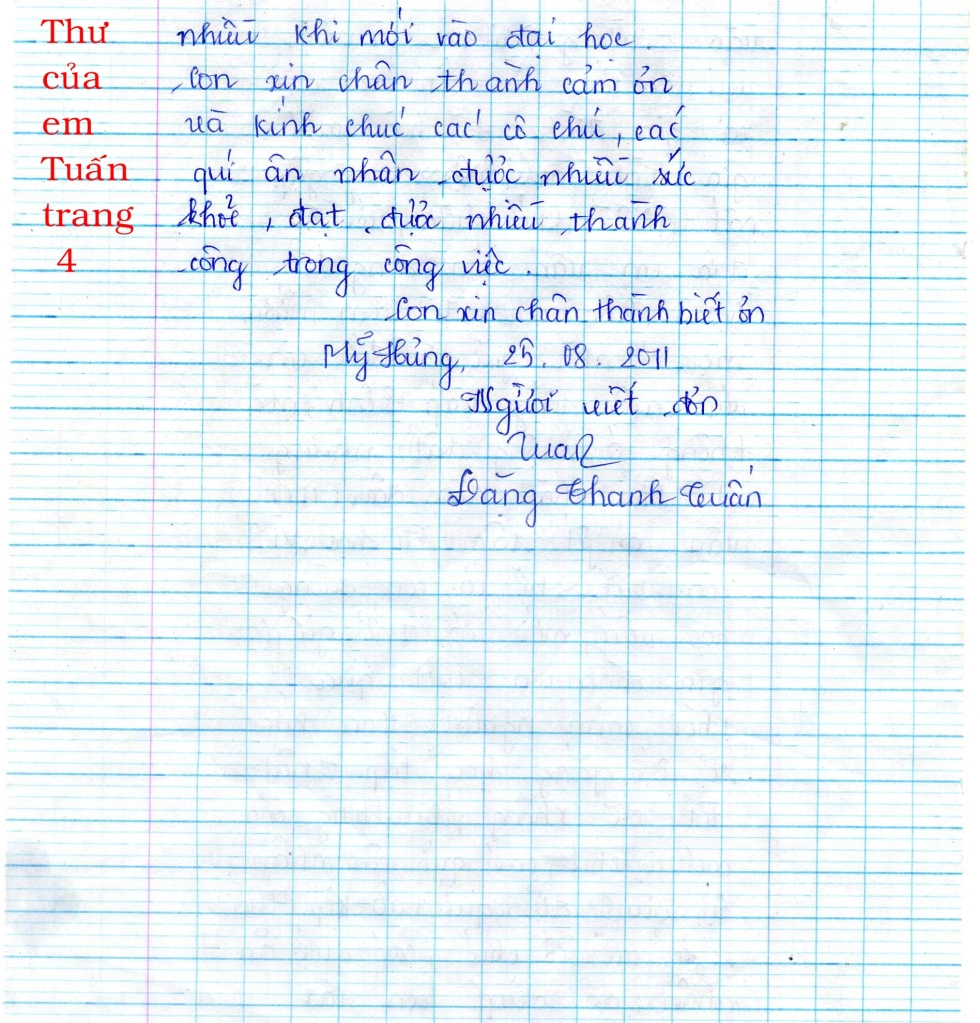 Thư
của
em
Tuấn
trang
4
nhiều khi mới vào đại học.
Con xin chân thành cảm ơn
và kính chúc các cô chú, các
quí ân nhân được nhiều sức
khoẻ, đạt được nhiều thành
công trong công việc.
Con xin chân thành biết ơn
Mỹ Hưng, 25.08.2011
Người viết đơn
Đặng Thanh Tuấn